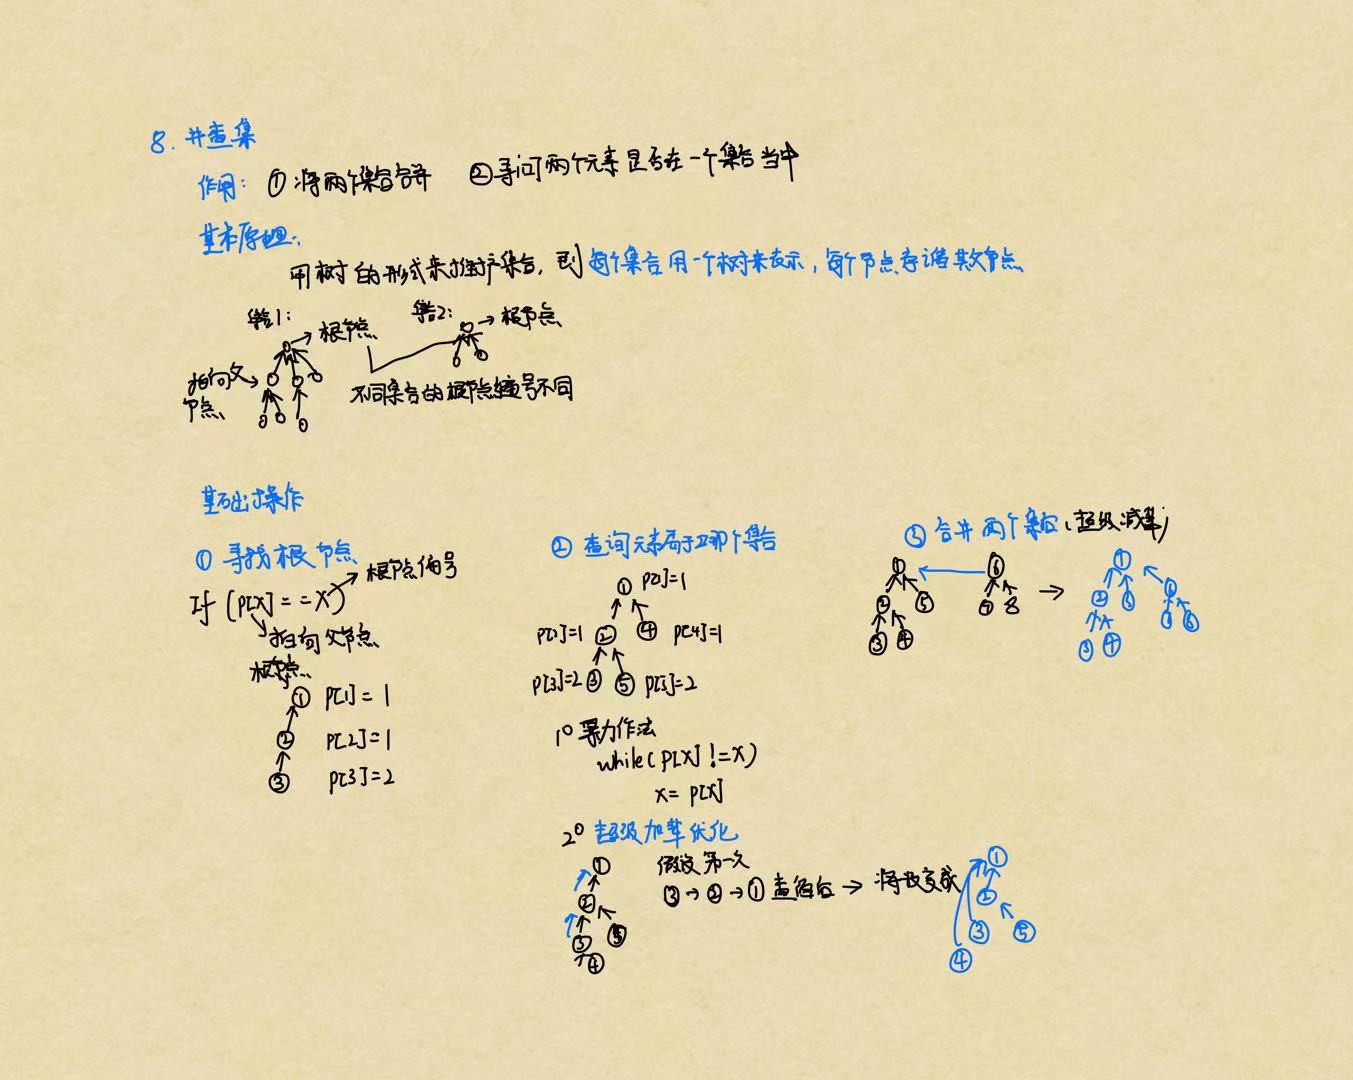 8. 并查集
作用: ① 将两个集合合并 ② 寻问两个元素是否在一个集合当中
基本原理:
用树的形式来维护集合, 即每个集合用一个树来表示, 每个节点存储其父节点
集合1: 根节点 集合2: 根节点
指向父
节点
不同集合的根节点编号不同
基础操作
① 寻找根节点
根节点编号
If (P[X]==X)
指向父节点
根节点
① P[1]=1
② P[2]=1
③ P[3]=2
② 查询元素属于哪个集合
① P[1]=1
P[2]=1 ② ④ P[4]=1
P[3]=2 ③ ⑤ P[5]=2
1° 暴力作法
while(P[X]!=X)
X=P[X]
2° 超级加辈优化
① 假设第一次
③→②→①查询后→将其变成 ①
② ②
③ ⑤ ③ ⑤
④ ④
③ 合并两个集合(超级减辈)
① ⑥ → ①
② ⑤ 7 8 ② ⑤ ⑥
③ ④ ③ ④